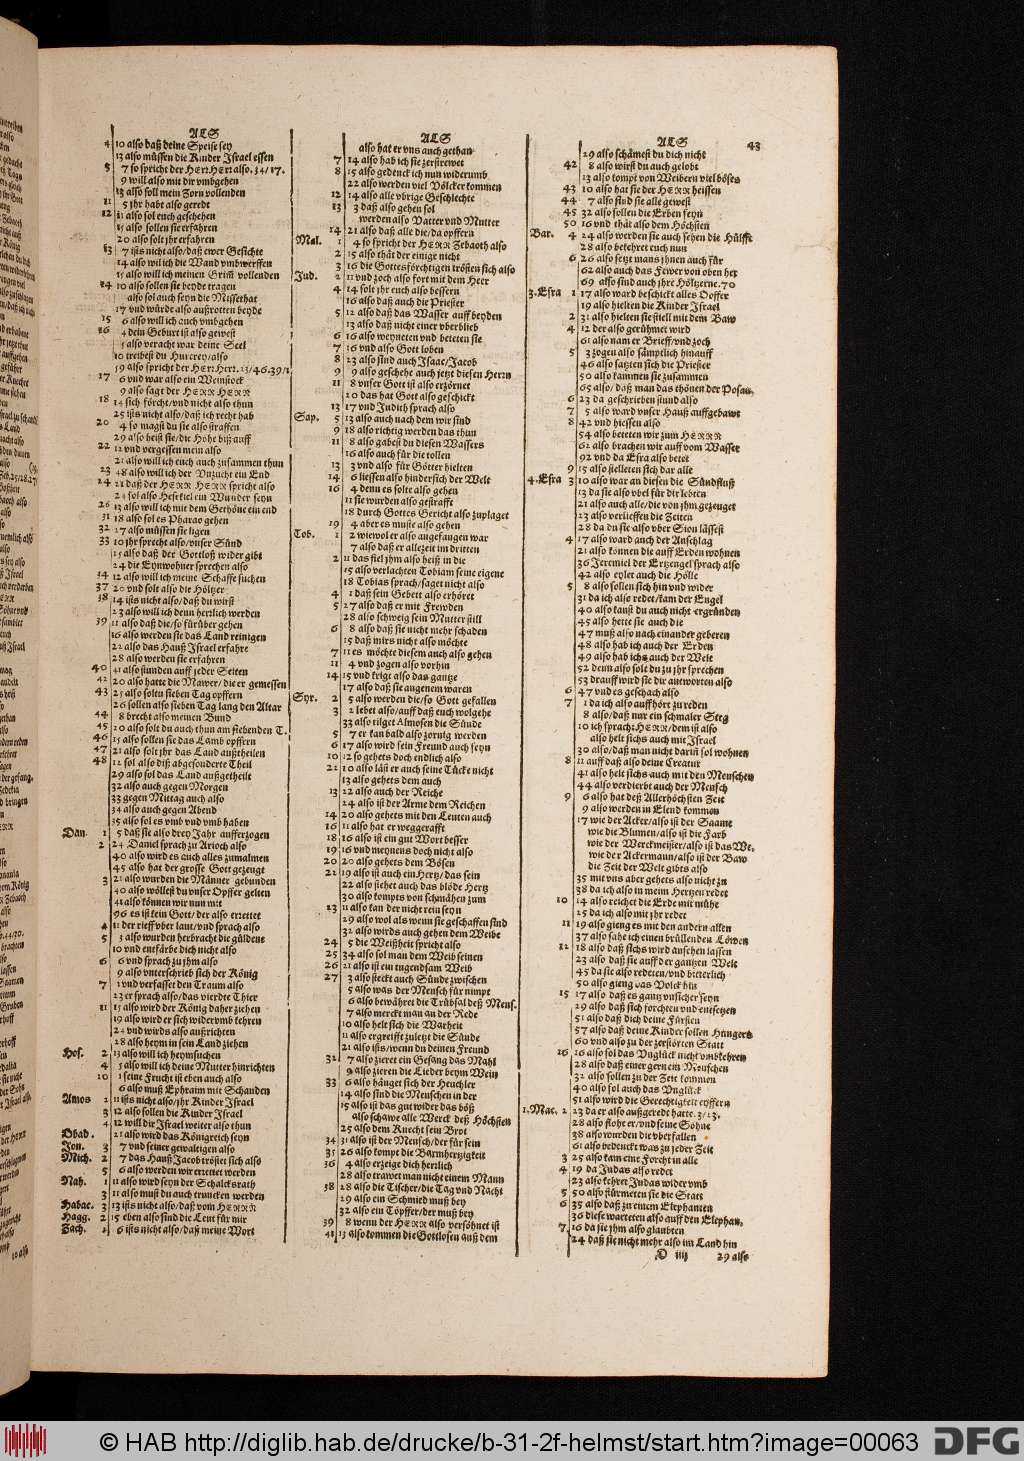 ALS
4 10 also daß deine Speise sey
13 also müssen die Kinder Israel essen
5 7 so spricht der HErr HErr also. 34/17.
9 will also mit dir vmbgehen
13 also soll mein Zorn vollenden
11 5 jhr habt also geredt
12 11 also sol euch geschehen
15 also sollen sie erfahren
20 also solt jhr erfahren
13 7 ists nicht also/daß ewer Gesichte
14 also wil ich die Wand vmbwerffen
15 also will ich meinen Grim̃ vollenden
14 10 also sollen sie beyde tragen
also sol auch seyn die Missethat
17 vnd würde also außrotten beyde
15 6 also will ich auch vmbgehen
16 4 dein Geburt ist also gewest
5 also veracht war deine Seel
10 treibest du Hurerey/also
59 also spricht der HErr Herr. 13/46.39/1
17 6 vnd war also ein Weinstock
9 also sagt der HERR HERR
18 14 sich förcht/vnd nicht also thun
25 ists nicht also/daß ich recht hab
20 4 so magst du sie also straffen
29 also heist sie/die Höhe biß auff
22 12 vnd vergessen mein also
21 also will ich euch auch zusammen thun
23 48 also will ich der Vnzucht ein End
24 21 daß der HERR HERR spricht also
24 sol also Hesekiel ein Wunder seyn
26 13 also will ich mit dem Gethöne ein end
31 18 also sol es Pharao gehen
32 27 also müssen sie ligen
33 10 jhr sprecht also/vnser Sünd
15 also daß der Gottloß wider gibt
24 die Eynwohner sprechen also
34 12 also will ich meine Schaffe suchen
37 20 vnd solt also die Höltzer
38 14 ists nicht also/daß du wirst
23 also will ich denn herrlich werden
39 11 also daß die/so fürüber gehen
16 also werden sie das Land reinigen
22 also das Hauß Israel erfahre
28 also werden sie erfahren
40 41 also stunden auff jeder Seiten
42 20 also hatte die Mawer/die er gemessen
43 25 also solln sieben Tag opffern
26 sollen also sieben Tag lang den Altar
44 8 brecht also meinen Bund
45 20 also solt du auch thun am siebenden T.
46 15 also sollen sie das Lamb opffern
47 21 also solt jhr das Land außtheilen
48 12 sol also diß abgesonderte Theil
29 also sol das Land außgetheilt
32 also auch gegen Morgen
33 gegen Mittag auch also
34 also auch gegen Abend
35 also sol es vmb vnd vmb haben
Dan. 1 5 daß sie also drey Jahr aufferzogen
2 24 Daniel sprach zu Arioch also
40 also wird es auch alles zumalmen
45 also hat der grosse Gott gezeugt
3 21 also wurden die Männer gebunden
40 also wöllest du vnser Opffer gelten
41 also kom̃en wir nun mit
96 es ist kein Gott/der also errettet
4 11 der rieff vber laut/vnd sprach also
5 3 also wurden herbracht die güldene
10 vnd entfärbe dich nicht also
6 6 vnd sprach zu jhm also
9 also vnterschrieb sich der König
7 1 vnd verfasset den Traum also
23 er sprach also/das vierdte Thier
11 15 also wird der König daher ziehen
19 also wird er sich widervmb kehren
24 vnd wirds also außrichten
28 also heym in sein Land ziehen
Hos. 2 13 also will ich heymsuchen
4 5 also will ich deine Mutter hinrichten
10 1 seine Frucht ist eben auch also
6 also muß Ephraim mit Schanden
Amos 2 11 ists nicht also/jhr Kinder Israel
3 12 also sollen die Kinder Israel
4 12 will dir Israel weiter also thun
Obad. 21 also wird das Königreich seyn
Jon. 3 7 vnd seiner gewaltigen also
Mich. 2 7 das Hauß Jacob tröstet sich also
5 6 also werden wir errettet werden
Nah. 1 11 also wird seyn der Schalcksrath
3 11 also must du auch truncken werden
Habac. 2 13 ists nicht also/daß vom HERRN
Hagg. 2 15 eben also sind die Leut für mir
Zach. 1 6 ists nicht also/daß meine Wort
ALS
also hat er vns auch gethan
7 14 also hab ich sie zerstrewet
8 15 also gedenck ich nun widerumb
22 also werden viel Völcker kommen
12 14 also alle vbrige Geschlechte
13 3 daß also gehen sol
werden also Vatter vnd Mutter
14 21 also daß alle die/da opffern
Mal. 1 4 so spricht der HERR Zebaoth also
2 15 also thät der einige nicht
3 16 die Gottsförchtigen trösten sich also
Jud. 2 11 vnd zoch also fort mit dem Heer
4 14 solt jhr euch also bessern
16 also daß auch die Priester
5 12 also daß das Wasser auff beyden
13 also daß nicht einer vberblieb
6 16 also weyneten vnd beteten sie
7 16 vnd also Gott loben
8 23 also sind auch Isaac/Jacob
9 9 also geschehe auch jetzt diesen Herrn
11 8 vnser Gott ist also erzörnet
20 das hat Gott also geschickt
13 17 vnd Judith sprach also
Sap. 5 13 also auch nach dem wir sind
9 18 also richtig werden das thun
11 8 also gabest du diesen Wassers
16 also auch für die tollen
13 3 vnd also für Götter hielten
14 6 liessen also hindersich der Welt
16 4 denn es solte also gehen
11 sie wurden also gestrafft
18 durch Gottes Gericht also zuplaget
19 4 aber es muste also gehen
Tob. 1 2 wiewol er also angefangen war
7 also daß er allezeit im dritten
2 11 das fiel jhm also heiß in die
15 also verlachten Tobiam seine eigene
18 Tobias sprach/saget nicht also
4 1 daß sein Gebett also erhöret
5 27 also daß er mit Frewden
28 also schweig sein Mutter still
6 8 also daß sie nicht mehr schaden
15 daß mirs nicht also möchte
7 11 es möchte diesem auch also gehen
11 4 vnd zogen also vorhin
14 15 vnd krigt also das gantze
17 also daß sie angenem waren
Syr. 2 5 also werden die/so Gott gefallen
3 2 lebet also/auff daß euch wolgehe
33 also tilget Almosen die Sünde
5 7 er kan bald also zornig werden
6 17 also wird sein Freund auch seyn
10 12 so gehets doch endlich also
21 10 also läst er auch seine Tücke nicht
13 also gehets dem auch
13 22 also auch der Reiche
24 also ist der Arme dem Reichen
14 20 also gehets mit den Leuten auch
16 11 also hat er weggerafft
18 16 also ist ein gut Wort besser
19 16 vnd meynens doch nicht also
20 20 also gehets dem Bösen
22 19 also ist auch ein Hertz/das sein
22 also stehet auch das blöde Hertz
30 also kompts von schmähen zum
23 11 also kan der nicht rein seyn
29 also wol als wenn sie geschaffen sind
32 also wirds auch gehen dem Weibe
24 5 die Weißheit spricht also
25 34 also sol man dem Weib seinen
26 21 also ist ein tugendsam Weib
27 3 also steckt auch Sünde zwischen
5 also was der Mensch für nimpt
6 also bewähret die Trübsal deß Mens.
7 also merckt man an der Rede
10 also helt sich die Warheit
11 also ergreifft zuletzt die Sünde
21 also ists/wenn du deinen Freund
32 7 also zieret ein Gesang das Mahl
9 also zieren die Lieder beym Wein
33 6 also hänget sich der Heuchler
14 also sind die Menschen in der
15 also ist das gut wider das böß
also schawe alle Werck deß Höchsten
25 also dem Knecht sein Brot
34 31 also ist der Mensch/der für sein
35 26 also kompt die Barmhertzigkeit
36 4 also erzeige dich herrlich
28 also trawet man nicht einem Mann
38 28 also die Tischer/die Tag vnd Nacht
29 also ein Schmied muß bey
32 also ein Töpffer/der muß bey
39 8 wenn der HERR also versöhnet ist
41 13 also kommen die Gottlosen auß dem
ALS 43
29 also schämest du dich nicht
42 8 also wirst du auch gelobt
13 also kompt von Weibern viel böses
43 10 also hat sie der HERR heissen
44 7 also sind sie alle gewest
45 32 also sollen die Erben seyn
50 16 vnd thät also dem Höchsten
Bar. 4 24 also werden sie auch sehen die Hülffe
28 also bekehret euch nun
6 26 also setzt mans jhnen auch für
62 also auch das Fewer von oben her
69 also sind auch jhre Höltzerne. 70
3. Esra 1 17 also ward beschickt alles Opffer
19 also hielten die Kinder Israel
2 31 also hielten sie still mit dem Baw
4 12 der also gerühmet wird
61 also nam er Brieff/vnd zoch
5 3 zogen also sämptlich hinauff
46 also satzten sich die Priester
50 also kammen sie zusammen
65 also/daß man das thönen der Posau.
6 23 da geschrieben stund also
7 5 also ward vnser Hauß auffgebawt
8 42 vnd hiessen also
54 also beteten wir zum HERRN
62 also brachen wir auff vom Wasser
92 vnd da Esra also betet
9 15 also stelleten sich dar alle
4. Esra 3 10 also war an diesen die Sündfluß
13 da sie also vbel für dir lebten
21 also auch alle/die von jhm gezeuget
23 also verlieffen die Zeiten
28 da du sie also vber Sion lässest
4 17 also ward auch der Anschlag
21 also können die auff Erden wohnen
36 Jeremiel der Ertzengel sprach also
42 also eyler auch die Hölle
5 8 also sollen sich hin vnd wider
31 da ich also redet/kam der Engel
40 also kanst du auch nicht ergründen
45 also hette sie auch die
47 muß also nach einander geberen
48 also hab ich auch der Erden
49 also hab ichs auch der Welt
52 denn also solt du zu jhr sprechen
53 drauff wird sie dir antworten also
6 47 vnd es geschach also
7 1 da ich also auffhört zu reden
8 also/daß nur ein schmaler Steg
10 ich sprach: HERR/dem ist also
also helt sichs auch mit Israel
30 also/daß man nicht darin̄ sol wohnen
8 11 auff daß also deine Creatur
41 also helt sichs auch mit den Menschen
44 also verdierbt auch der Mensch
9 6 also hat deß Allerhöchsten Zeit
9 also werden in Elend kommen
17 wie der Acker/also ist der Saame
wie die Blumen/also ist die Farb
wie der Werckmeister/also ist das We.
wie der Ackermann/also ist der Baw
die Zeit der Welt gibts also
35 mit vns aber gehets also nicht zu
38 da ich also in meim Hertzen redet
10 14 also reichet die Erde mit mühe
25 da ich also mit jhr redet
11 19 also gieng es mit den andern allen
37 also sahe ich einen brüllenden Löwen
12 18 also daß sichs wird ansehen lassen
23 also daß sie auff der gantzen Welt
45 da sie also redeten/vnd bitterlich
50 also gieng das Volck hin
15 17 also daß es gantz vnsicher seyn
29 also daß sich förchten vnd entsetzen
51 also daß dich deine Fürsten
57 also daß deine Kinder sollen Hungers
60 vnd also zu der zerstörten Statt
16 16 also sol das Vnglück nicht vmbkehren
28 also daß einer gern ein Menschen
32 also sollen zu der Zeit kommen
40 also sol auch das Vnglück
51 also wird die Gerechtigkeit eyffern
1. Mac. 2 23 da er also außgeredt hatte. 3/13.
28 also flohe er/vnd seine Söhne
38 also wurden die vberfallen
61 also bedenckt was zu jeder Zeit
3 25 also kam eine Forcht in alle
4 19 da Judas also redet
23 also kehret Judas wider vmb
5 50 also stürmeten sie die Statt
6 35 also daß zu einem Elephanten
36 diese warteten also auff den Elephan.
7 16 da sie jhm also glaubten
24 daß sie nicht mehr also im Land hin
D iiij 29 also
© HAB http://diglib.hab.de/drucke/b-31-2f-helmst/start.htm?image=00063
DFG